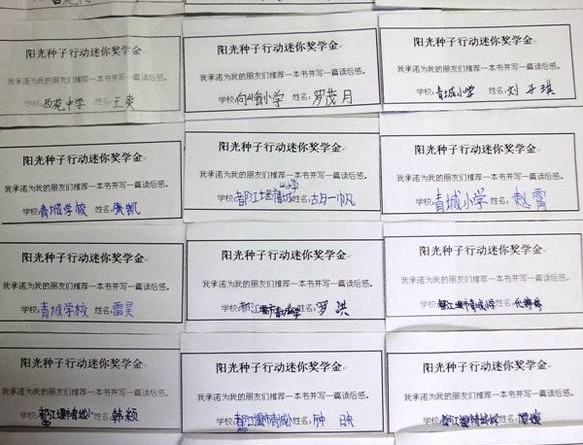 阳光种子行动迷你奖学金
我承诺为我的朋友们推荐一本书并写一篇读后感。
学校:西苑中学 姓名:王奕
阳光种子行动迷你奖学金
我承诺为我的朋友们推荐一本书并写一篇读后感。
学校:向峨小学 姓名:罗茂月
阳光种子行动迷你奖学金
我承诺为我的朋友们推荐一本书并写一篇读后感。
学校:青城小学 姓名:刘子琪
阳光种子行动迷你奖学金
我承诺为我的朋友们推荐一本书并写一篇读后感。
学校:青城学校 姓名:凯
阳光种子行动迷你奖学金
我承诺为我的朋友们推荐一本书并写一篇读后感。
学校:都江堰青城小学 姓名:胡一帆
阳光种子行动迷你奖学金
我承诺为我的朋友们推荐一本书并写一篇读后感。
学校:青城小学 姓名:赵雪
阳光种子行动迷你奖学金
我承诺为我的朋友们推荐一本书并写一篇读后感。
学校:青城学校 姓名:雷昊
阳光种子行动迷你奖学金
我承诺为我的朋友们推荐一本书并写一篇读后感。
学校:都江堰市青城小学 姓名:罗洪
阳光种子行动迷你奖学金
我承诺为我的朋友们推荐一本书并写一篇读后感。
学校:都江堰市青城小学 姓名:
阳光种子行动迷你奖学金
我承诺为我的朋友们推荐一本书并写一篇读后感。
学校:都江堰市青城小 姓名:韩颖
阳光种子行动迷你奖学金
我承诺为我的朋友们推荐一本书并写一篇读后感。
学校:都江堰市青城小 姓名:钟映
阳光种子行动迷你奖学金
我承诺为我的朋友们推荐一本书并写一篇读后感。
学校:都江堰市青城 姓名: